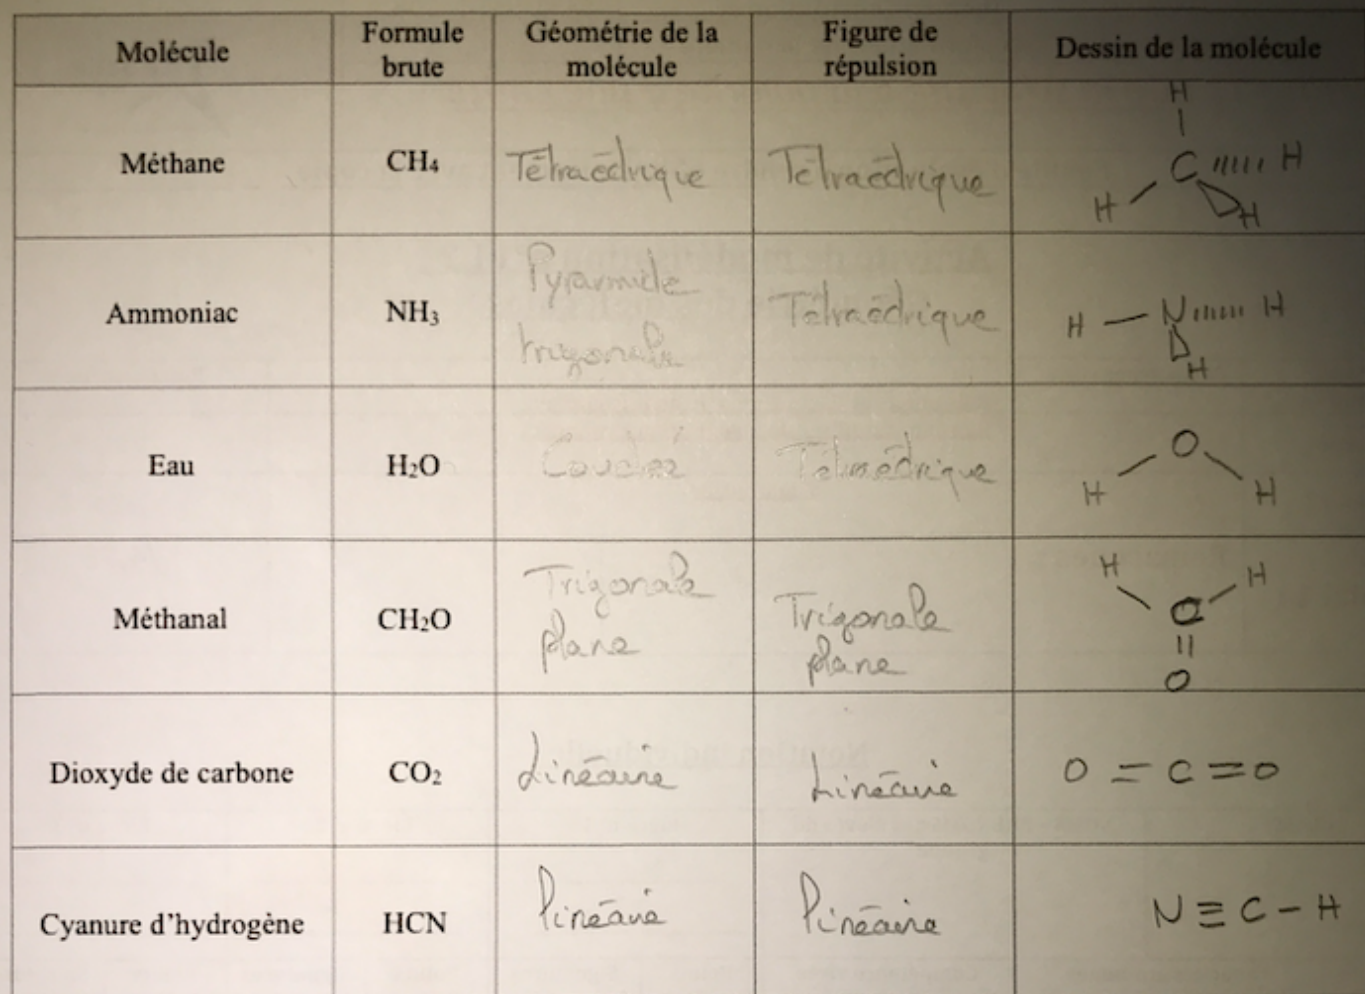 Molécule
Formule
brute
Géométrie de la
molécule
Figure de
répulsion
Dessin de la molécule
Méthane
CH₄
Tétraédrique
Tétraédrique
H
C H
H
H
Ammoniac
NH₃
Pyramide
trigonale
Tétraédrique
H — N H
H
Eau
H₂O
Coudée
Tétraédrique
O
H H
Méthanal
CH₂O
Trigonale
plane
Trigonale
plane
H H
C
O
Dioxyde de carbone
CO₂
Linéaire
Linéaire
O = C = O
Cyanure d'hydrogène
HCN
linéaire
linéaire
N ≡ C – H